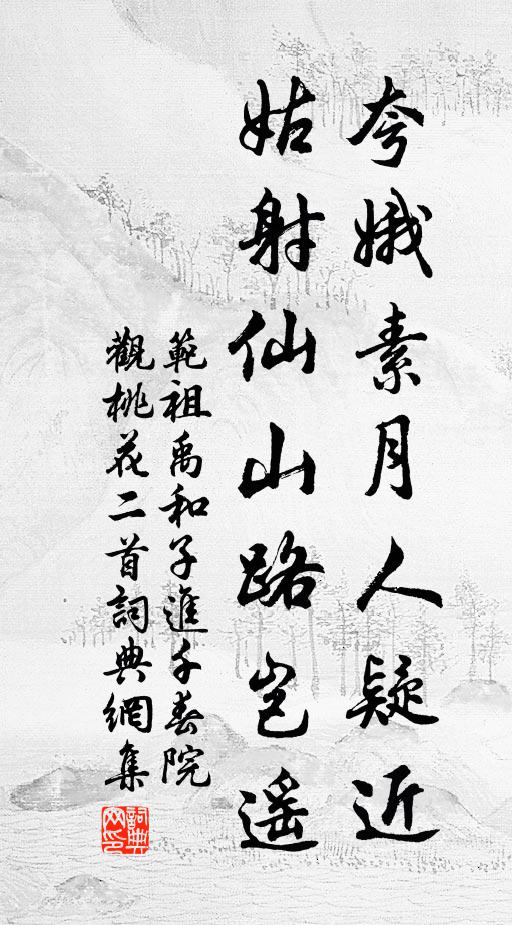 夸娥素月人疑近
姑射仙山路岂遥
範祖禹和子進千春院
觀桃花二首詞典網集
詞典网印